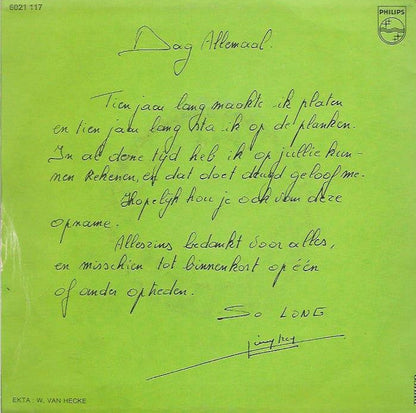 6021 117
PHILIPS
Dag Allemaal.
Tien jaar lang maakte ik platen
en tien jaar lang sta ik op de planken.
In al deze tijd heb ik op jullie kun-
nen rekenen, en dat doet deugd geloof me.
Hopelijk hou je ook van deze
opname.
Alleszins bedankt voor alles,
en misschien tot binnenkort op één
of ander optreden.
SO LONG
EKTA : W. VAN HECKE